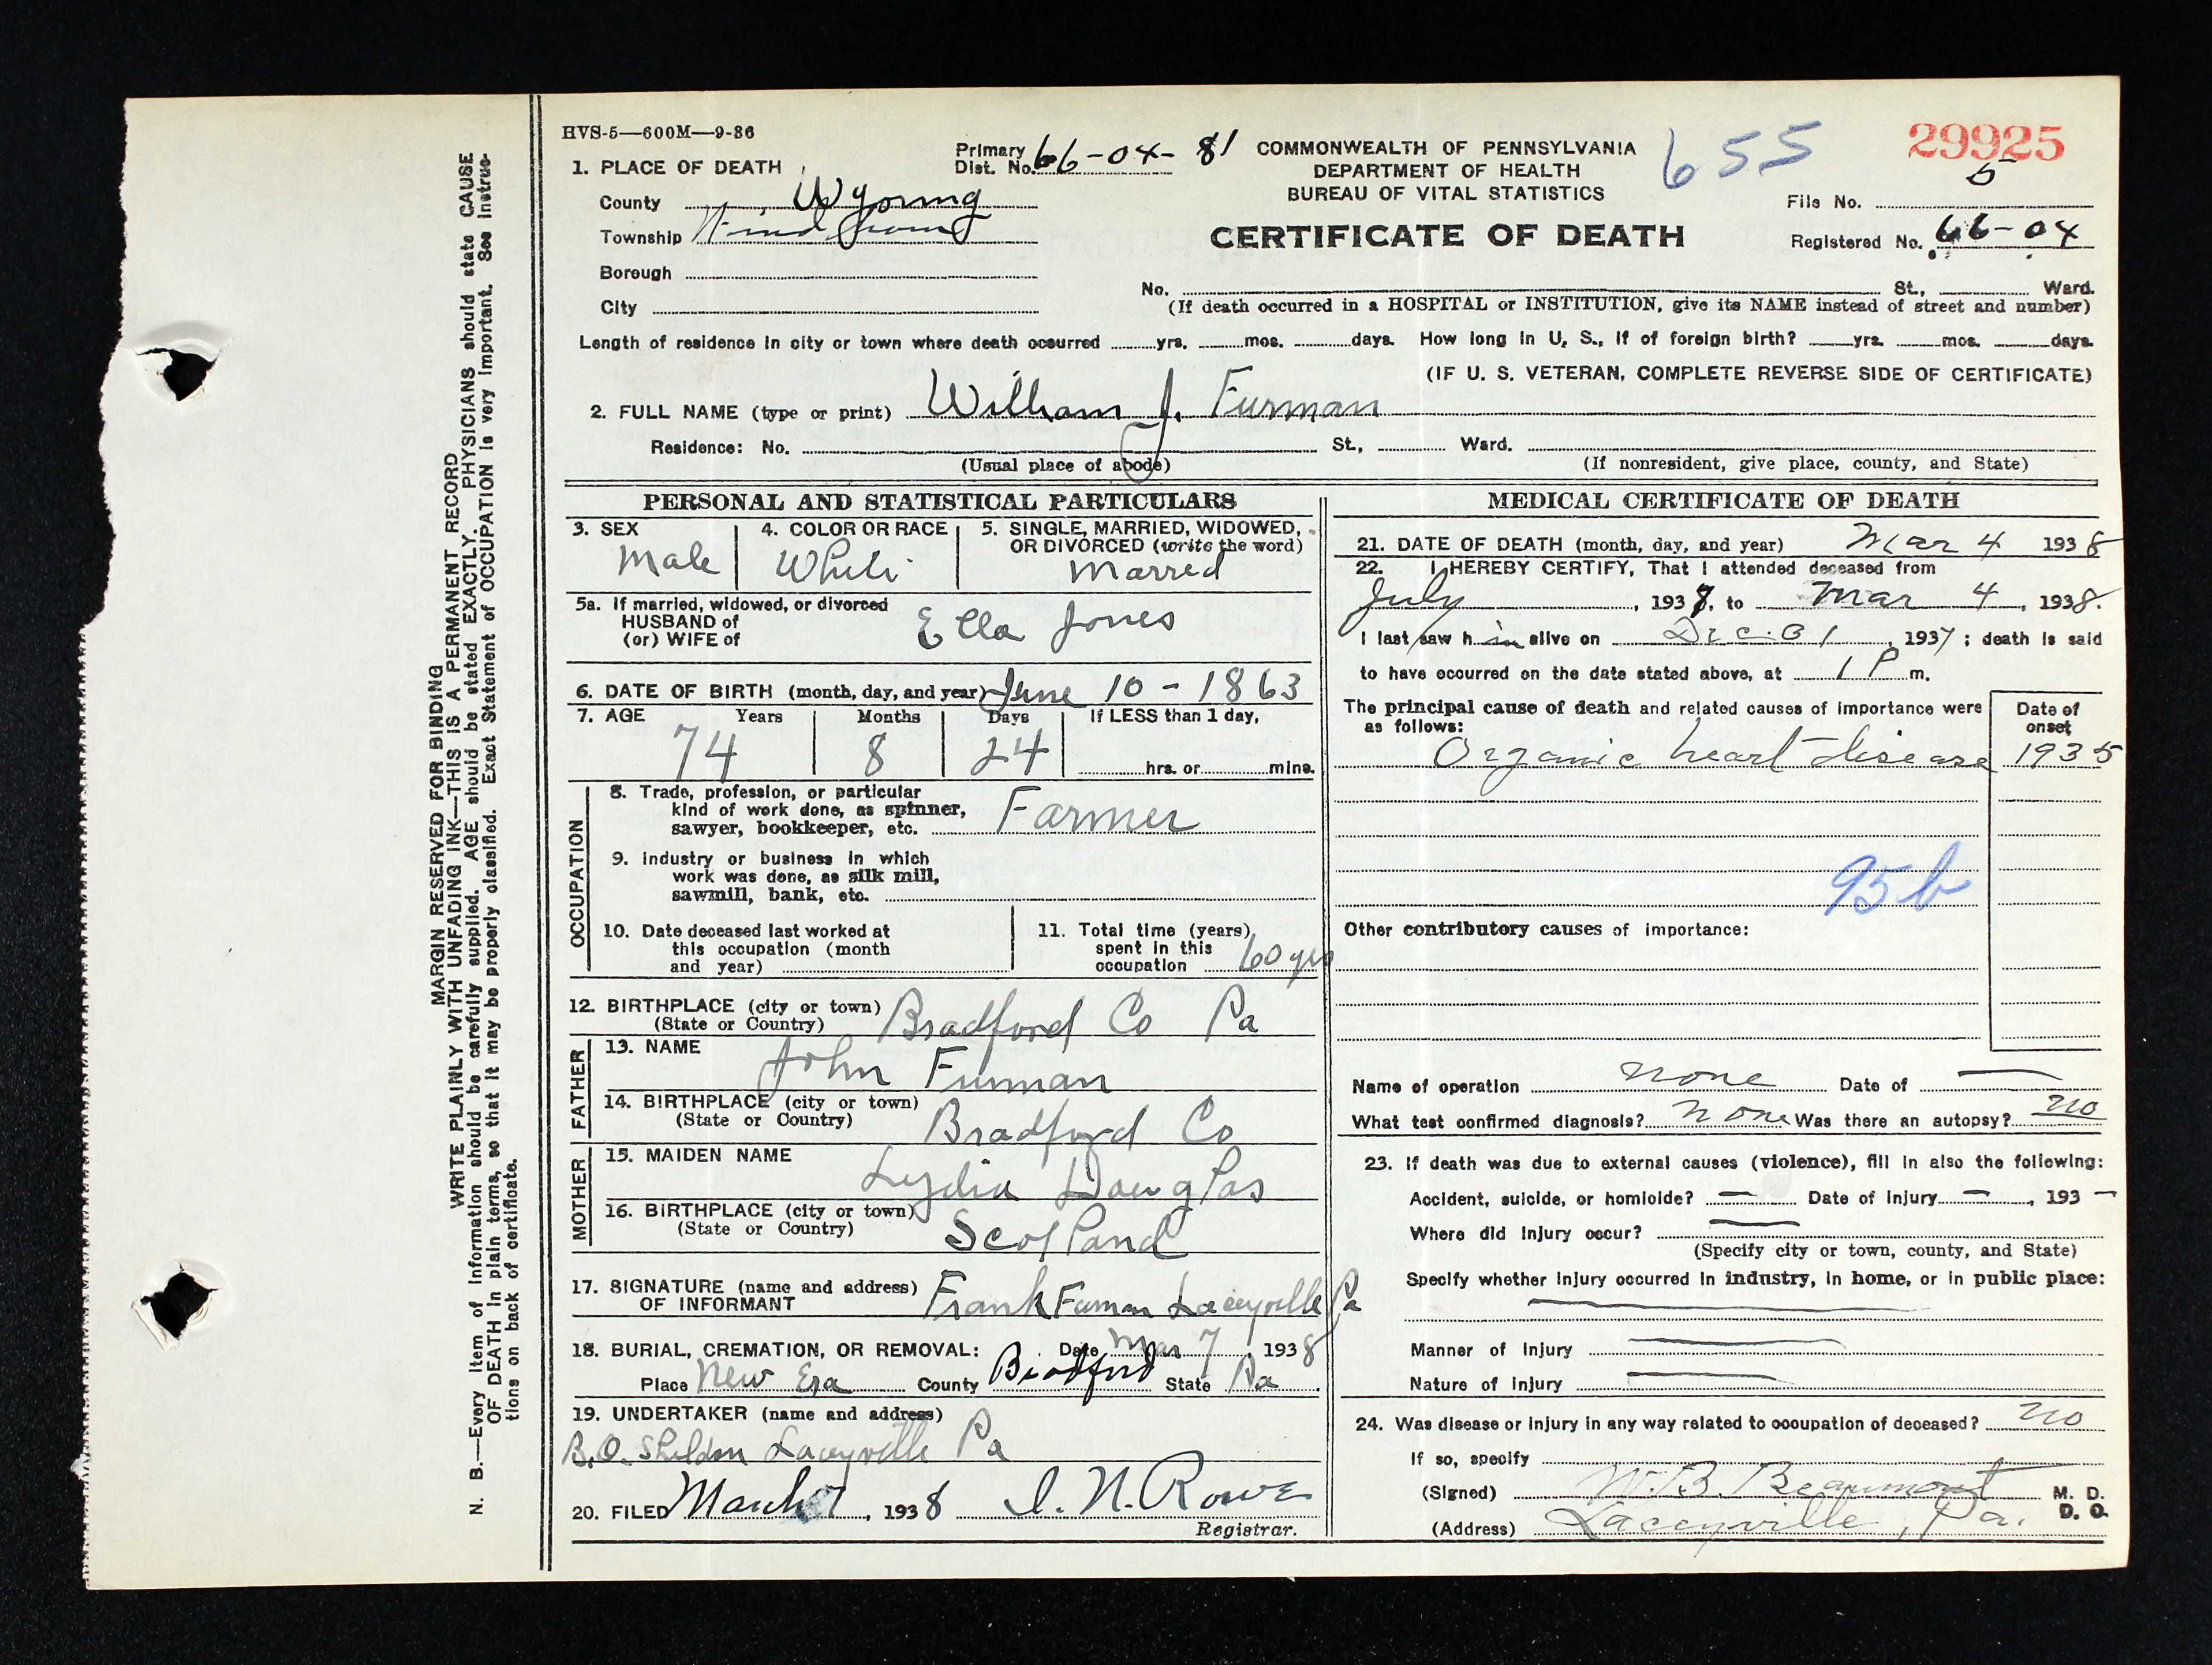 HVS-5—600M—9-36
Primary Dist. No. 66-04-81
COMMONWEALTH OF PENNSYLVANIA
DEPARTMENT OF HEALTH
BUREAU OF VITAL STATISTICS
CERTIFICATE OF DEATH
655
29925
5
File No.
Registered No. 66-04
1. PLACE OF DEATH
County Wyoming
Township Windham
Borough
City
No. St., Ward.
(If death occurred in a HOSPITAL or INSTITUTION, give its NAME instead of street and number)
Length of residence in city or town where death occurred yrs. mos. days. How long in U. S., if of foreign birth? yrs. mos. days.
(IF U. S. VETERAN, COMPLETE REVERSE SIDE OF CERTIFICATE)
2. FULL NAME (type or print) William J. Furman
Residence: No. St., Ward.
(Usual place of abode) (If nonresident, give place, county, and State)
PERSONAL AND STATISTICAL PARTICULARS
3. SEX
Male
4. COLOR OR RACE
White
5. SINGLE, MARRIED, WIDOWED,
OR DIVORCED (write the word)
Marred
5a. If married, widowed, or divorced
HUSBAND of
(or) WIFE of
Ella Jones
6. DATE OF BIRTH (month, day, and year) June 10 - 1863
7. AGE Years Months Days If LESS than 1 day,
74 8 24 hrs. or mins.
OCCUPATION
8. Trade, profession, or particular
kind of work done, as spinner,
sawyer, bookkeeper, etc. Farmer
9. Industry or business in which
work was done, as silk mill,
sawmill, bank, etc.
10. Date deceased last worked at
this occupation (month
and year)
11. Total time (years)
spent in this
occupation 60 yrs
12. BIRTHPLACE (city or town)
(State or Country) Bradford Co Pa
FATHER
13. NAME John Furman
14. BIRTHPLACE (city or town)
(State or Country) Bradford Co
MOTHER
15. MAIDEN NAME Lydia Douglas
16. BIRTHPLACE (city or town)
(State or Country) Scotland
17. SIGNATURE (name and address)
OF INFORMANT Frank Furman Laceyville Pa
18. BURIAL, CREMATION, OR REMOVAL: Date Mar 7, 1938
Place New Era County Bradford State Pa
19. UNDERTAKER (name and address)
B.O. Sheldon Laceyville Pa
20. FILED March 7, 1938 I. N. Rowe
Registrar.
MEDICAL CERTIFICATE OF DEATH
21. DATE OF DEATH (month, day, and year) Mar 4 1938
22. I HEREBY CERTIFY, That I attended deceased from
July, 1937, to Mar 4, 1938.
I last saw h im alive on Dec. 31, 1937; death is said
to have occurred on the date stated above, at 1 P m.
The principal cause of death and related causes of importance were
as follows:
Date of
onset
Organic heart disease 1935
95b
Other contributory causes of importance:
Name of operation none Date of —
What test confirmed diagnosis? none Was there an autopsy? no
23. If death was due to external causes (violence), fill in also the following:
Accident, suicide, or homicide? — Date of injury — , 193 —
Where did injury occur? —
(Specify city or town, county, and State)
Specify whether injury occurred in industry, in home, or in public place:
Manner of injury —
Nature of injury —
24. Was disease or injury in any way related to occupation of deceased? no
If so, specify
(Signed) W. B. Beaumont M. D.
D. O.
(Address) Laceyville, Pa.
MARGIN RESERVED FOR BINDING
WRITE PLAINLY WITH UNFADING INK—THIS IS A PERMANENT RECORD
N. B.—Every item of information should be carefully supplied. AGE should be stated EXACTLY. PHYSICIANS should state CAUSE
OF DEATH in plain terms, so that it may be properly classified. Exact Statement of OCCUPATION is very important. See instruc-
tions on back of certificate.